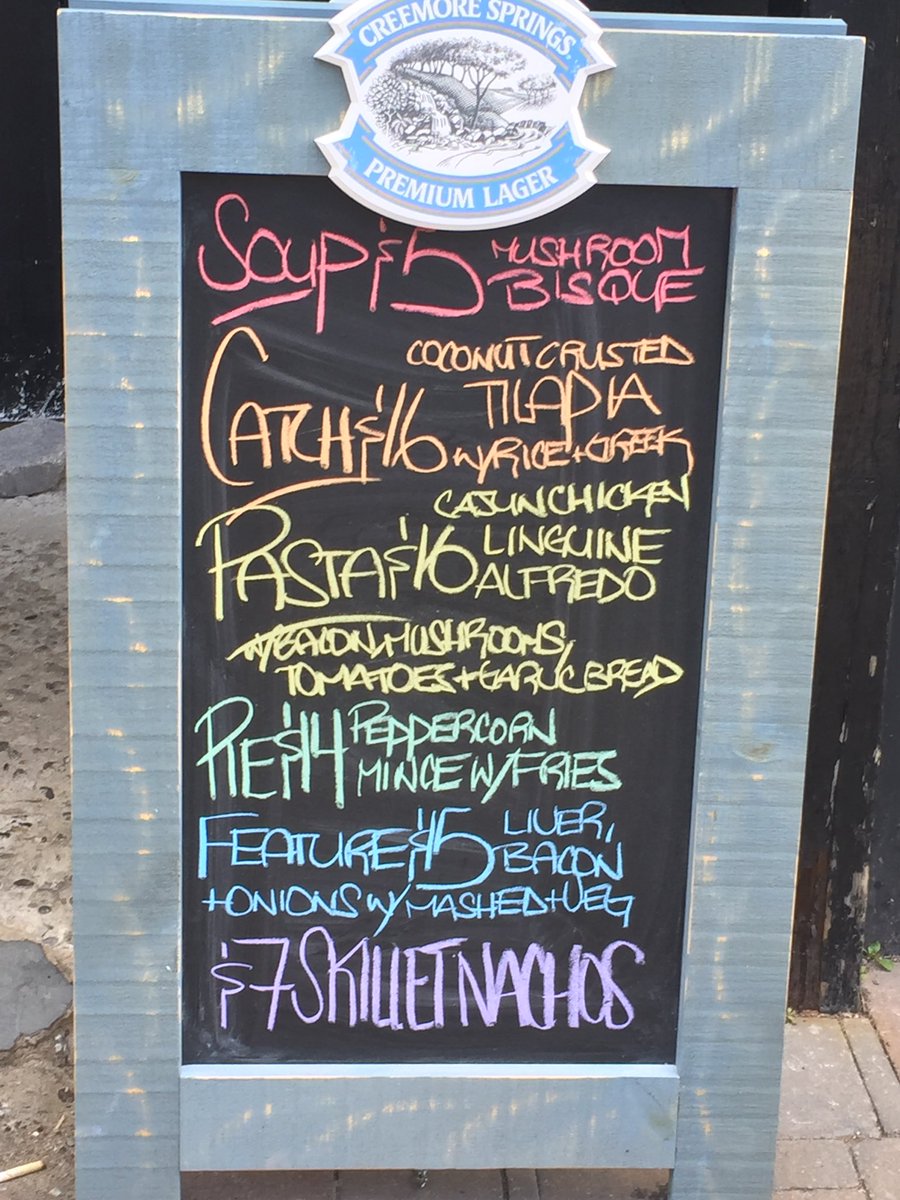 CREEMORE SPRINGS
PREMIUM LAGER
SOUP $5 MUSHROOM
BISQUE
COCONUT CRUSTED
CATCH $16 TILAPIA
W/ RICE + GREEK
CAJUN CHICKEN
PASTA $16 LINGUINE
ALFREDO
W/ BACON, MUSHROOMS,
TOMATOES + GARLIC BREAD
PIE $14 PEPPERCORN
MINCE W/ FRIES
FEATURE $15 LIVER,
BACON
+ ONIONS W/ MASHED + VEG
$7 SKILLET NACHOS